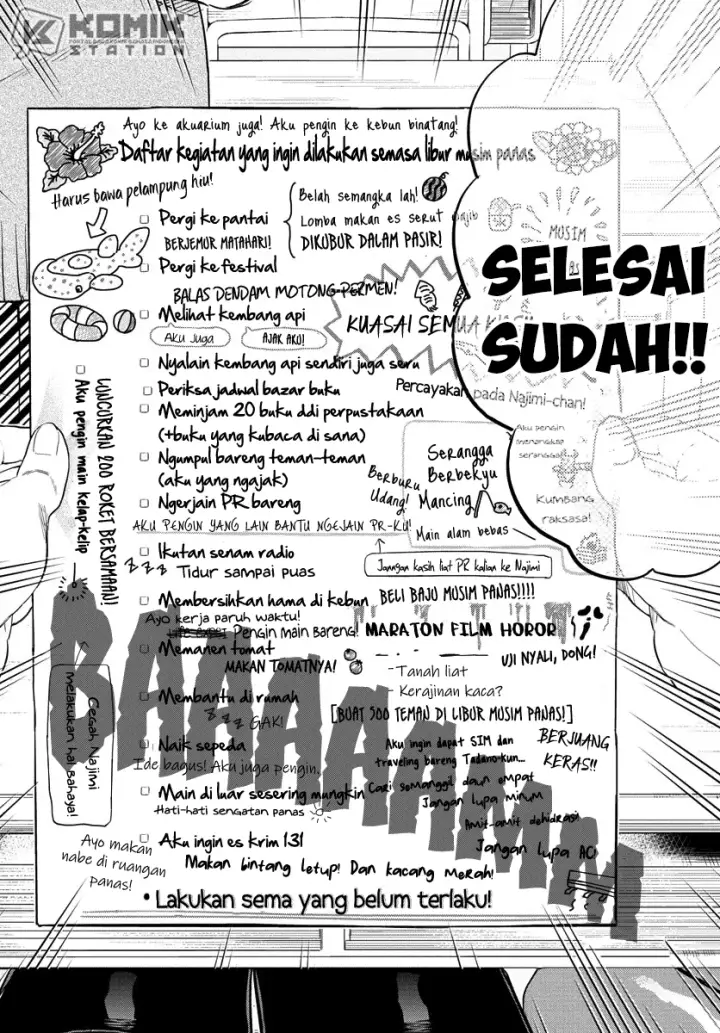 KOMIK
STATION
Ayo ke akuarium juga! Aku pengin ke kebun binatang!
Daftar kegiatan yang ingin dilakukan semasa libur musim panas
Harus bawa pelampung hiu!
Pergi ke pantai
BERJEMUR MATAHARI!
Belah semangka lah!
Lomba makan es serut
DIKUBUR DALAM PASIR!
MUSIM
Pergi ke festival
BALAS DENDAM MOTONG PERMEN!
SELESAI
SUDAH!!
Melihat kembang api
Aku juga
AJAK AKU!
KUASAI SEMUA
Nyalain kembang api sendiri juga seru
Periksa jadwal bazar buku
Percayakan pada Najimi-chan!
Meminjam 20 buku ddi perpustakaan
(+buku yang kubaca di sana)
Aku pengin
menangkap
serangga
Ngumpul bareng teman-teman
(aku yang ngajak)
Serangga
Berbekyu
Berburu
Udang!
Mancing
Kumbang
raksasa!
Ngerjain PR bareng
AKU PENGIN YANG LAIN BANTU NGEJAIN PR-KU!
Main alam bebas
LUNCURKAN 200 ROKET BERSAMAAN!
Aku pengin main kelap-kelip
Ikutan senam radio
Janngan kasih liat PR kalian ke Najimi
Z Z Z Tidur sampai puas
Membersihkan hama di kebun
BELI BAJU MUSIM PANAS!!!!
Ayo kerja paruh waktu!
Pengin main bareng!
MARATON FILM HOROR
Memanen tomat
MAKAN TOMATNYA!
UJI NYALI, DONG!
-Tanah liat
- Kerajinan kaca?
Cegah Najimi
melakukan hal bahaya!
Membantu di rumah
Z Z Z GAK!
[BUAT 500 TEMAN DI LIBUR MUSIM PANAS!]
Naik sepeda
Ide bagus! Aku juga pengin.
Aku ingin dapat SIM dan
traveling bareng Tadano-kun...
BERJUANG
KERAS!!
Main di luar sesering mungkin
Hati-hati sengatan panas
Cari semanggi daun empat
Jangan lupa minum
Amit-amit dehidrasi
Jangan lupa AC!
Aku ingin es krim 131
Makan bintang letup! Dan kacang merah!
Ayo makan
nabe di ruangan
panas!
• Lakukan sema yang belum terlaku!
BAAAAAMM